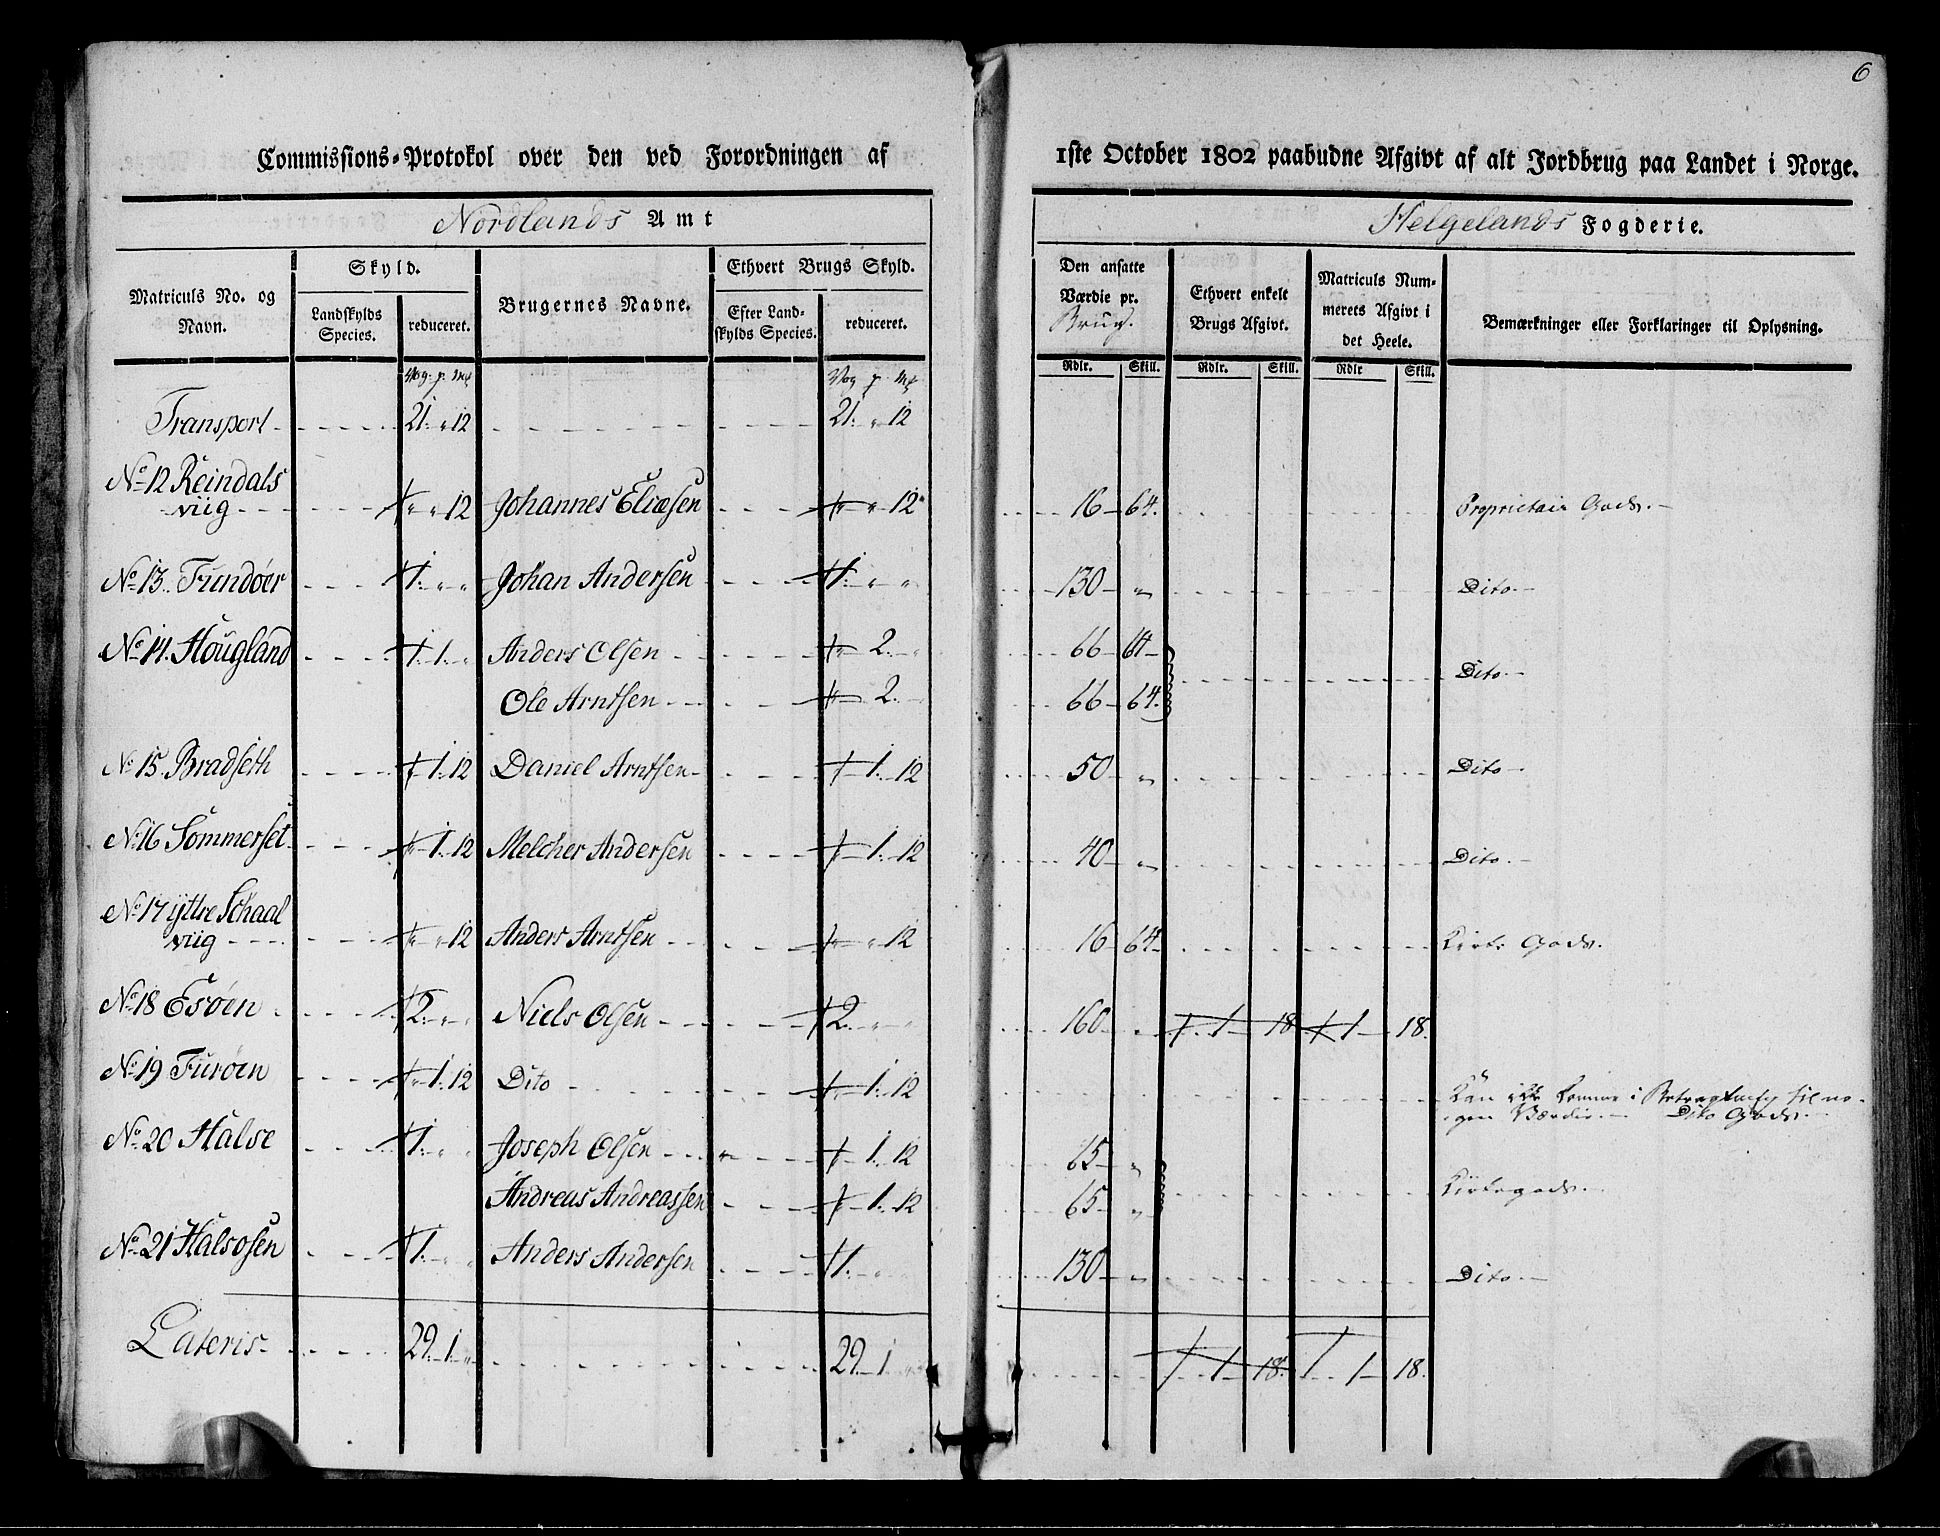 6
Commissions-Protokol over den ved Forordningen af 1ste October 1802 paabudne Afgivt af alt Jordbrug paa Landet i Norge.
Nordlands Amt Helgelands Fogderie.
Matriculs No. og Navn.
Skyld.
Landskylds Species.
reduceret.
Brugernes Navne.
Ethvert Brugs Skyld.
Efter Landskylds Species.
reduceret.
Den ansatte Værdie pr. Brug.
Ethvert enkelt Brugs Afgivt.
Matriculs Nummerets Afgivt i det Heele.
Bemærkninger eller Forklaringer til Oplysning.
Vog. p. Mk Vog p. Mk Rdlr. Skill. Rdlr. Skill. Rdlr Skill.
Transport 21. " 12 21. " 12
No 12 Reindals
viig " " 12 Johannes Eliæsen " " 12 16 64. Proprietair Gods.
No 13. Fundöer 1. " " Johan Andersen 1. " " 130 " Dito.
No 14. Hougland 1. 1. " Anders Olsen " 2. " 66 64 Dito.
Ole Arntsen " 2. 66 64.
No 15. Bradseth 1. 12 Daniel Arntsen 1. 12 50 " Dito.
No 16 Sommerset " 1. 12 Melcher Andersen 1. 12 40 " Dito.
No 17 ÿttre Schaal
viig " " 12 Anders Arntsen " " 12 16 64 Kirke Gods.
No 18 Esöen 2. " " Niels Olsen 2. " " 160 " 1 18 1 18.
No 19 Furöen " 1. 12 Dito " 1. 12 Kan ikke komme i Betragtning til no-
gen Værdie. Dito Gods.
No 20 Halse 1. " " Joseph Olsen 1. 12 65 " Kirkegods.
Andreas Andreassen 1. 12 65 "
No 21 Halsosen 1. " " Anders Andersen 1. " " 130 " Dito.
Lateris 29. 1. " 29. 1 " 1 18. 1 18.